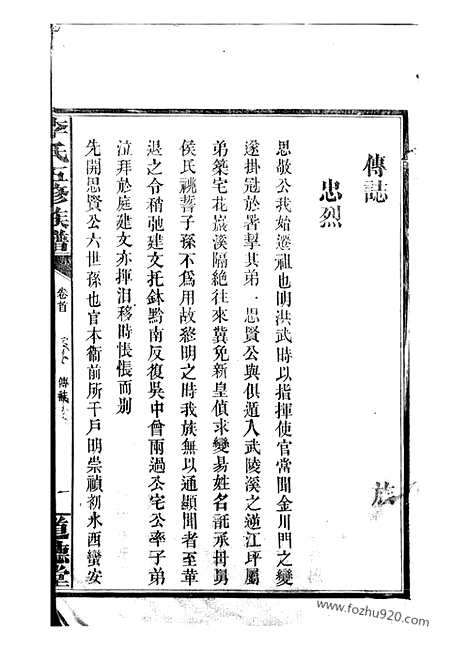 傳誌
忠烈
思敬公我始遷祖也明洪武時以指揮使官常聞金川門之變
遂掛冠於署挈其弟思賢公與俱遁入武陵溪之逆江坪屬
弟築宅花巖溪隔絶往來冀免新皇偵求變易姓名託承母舅
侯氏祧誓子孫不爲用故終明之時我族無以通顯聞者至革
退之令稍弛建文托鉢黔南反復吳中曾兩過公宅公率子弟
泣拜於庭建文亦揮泪移時悵悵而别
先開思賢公六世孫也官本衞前所千戶明崇禎初水西蠻安
李氏五修族譜
卷首
傳誌
一
道德堂
族
www.fozhu920.com